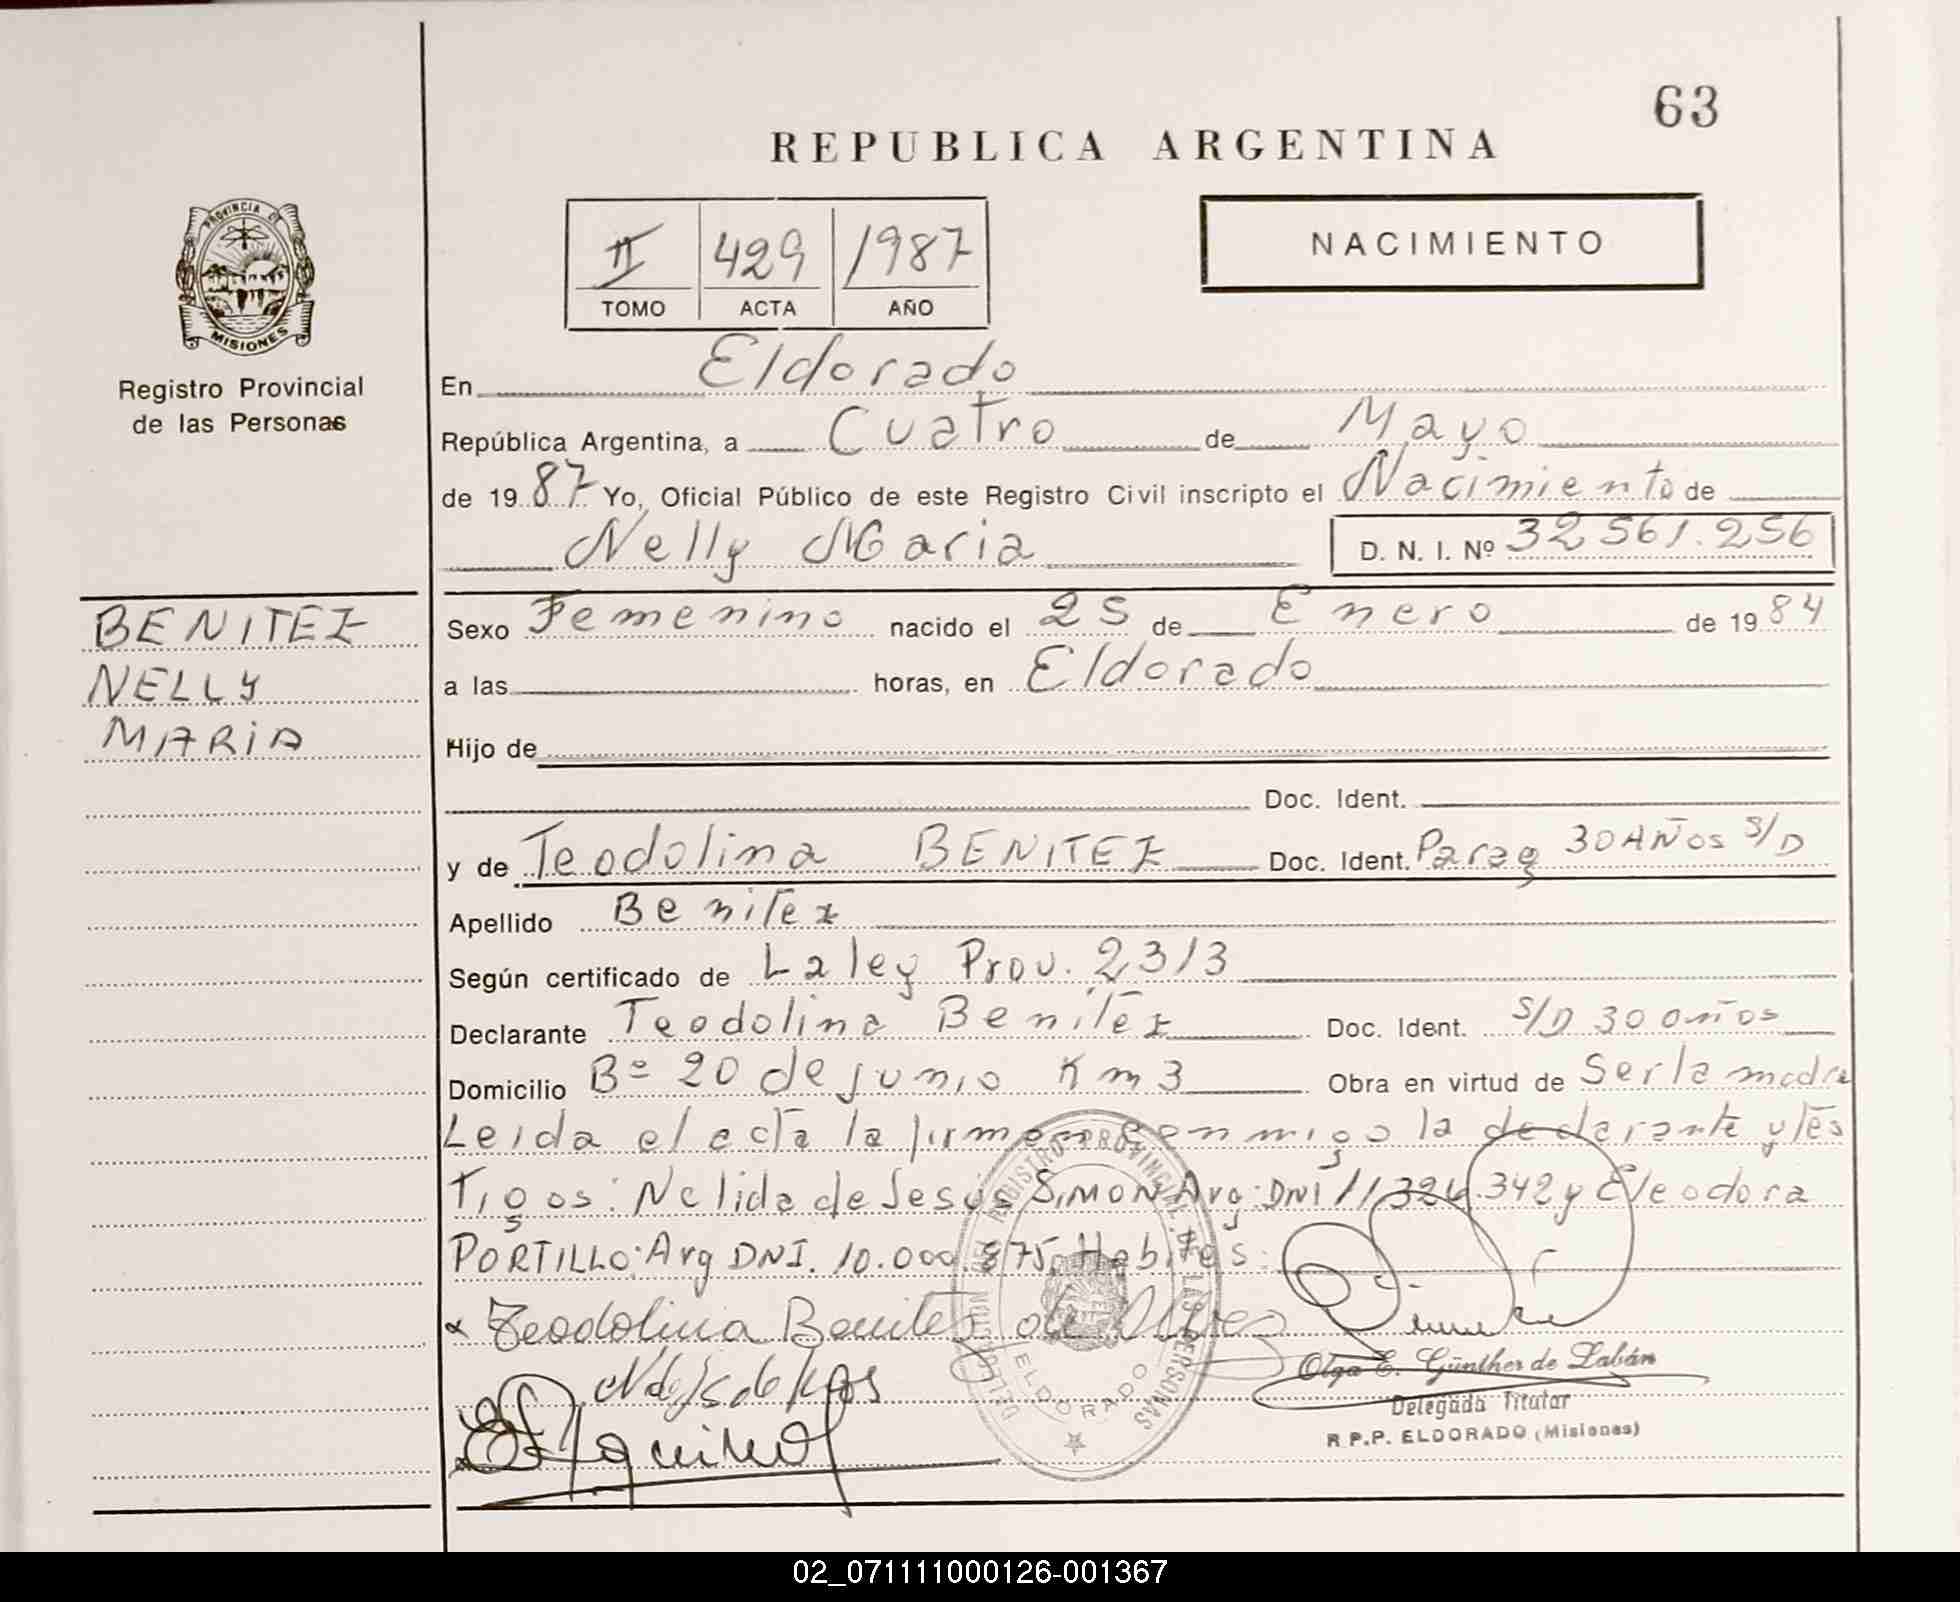 63
REPUBLICA ARGENTINA
PROVINCIA DE
MISIONES
Registro Provincial
de las Personas
II 429 1987
TOMO ACTA AÑO
NACIMIENTO
En Eldorado
República Argentina, a Cuatro de Mayo
de 1987 Yo, Oficial Público de este Registro Civil inscripto el Nacimiento de
Nelly Maria D. N. I. Nº 32 561.256
BENITEZ
NELLY
MARIA
Sexo Femenino nacido el 25 de Enero de 1984
a las horas, en Eldorado
Hijo de
Doc. Ident.
y de Teodolina BENITEZ Doc. Ident. Parag 30 AÑOS S/D
Apellido Benitez
Según certificado de La ley Prov. 2313
Declarante Teodolina Benitez Doc. Ident. S/D 30 años
Domicilio Bº 20 de junio Km 3 Obra en virtud de Ser la madre
Leida el acta la firman conmigo la declarante y tes
Tigos: Nelida de Jesús SIMON Arg: DNI 11324.342 y Eleodora
PORTILLO: Arg DNI. 10.000.875 Habiles:
x Teodolina Benites de
DELEGACION DEL REGISTRO PROVINCIAL DE LAS PERSONAS
ELDORADO
Olga E. Günther de Labán
Delegada Titular
R.P.P. ELDORADO (Misiones)
02_071111000126-001367